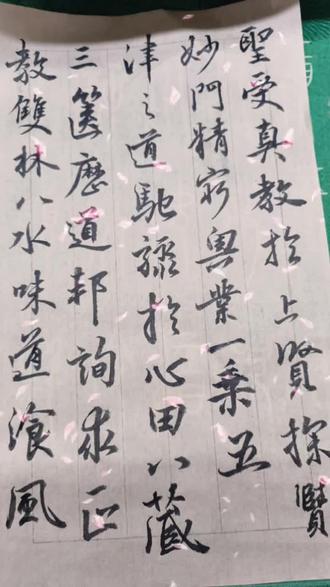 聖受真教於上賢探賾
妙門精窮奧業一乘五
律之道馳驟於心田八藏
三篋歷道邦詢求正
教雙林八水味道湌風